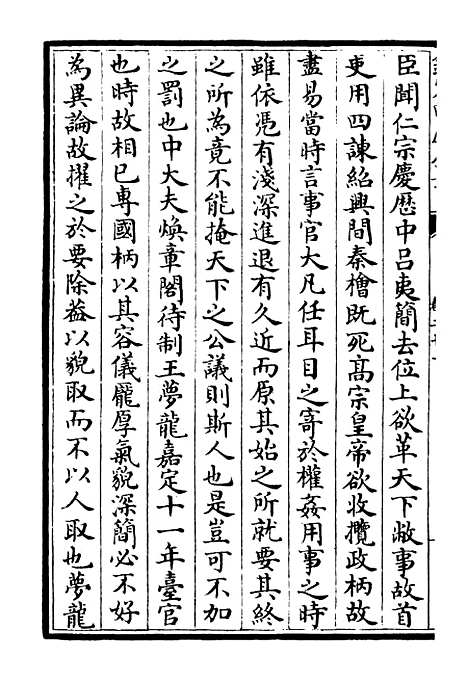 臣聞仁宗慶歷中吕夷簡去位上欲革天下敝事故首
更用四諫紹興間秦檜既死髙宗皇帝欲收攬政柄故
盡易當時言事官大凡任耳目之寄於權姦用事之時
雖依凴有淺深進退有久近而原其始之所就要其終
之所為竟不能掩天下之公議則斯人也是豈可不加
之罰也中大夫煥章閣待制王夢龍嘉定十一年臺官
也時故相已專國柄以其容儀龎厚氣貌深簡必不好
為異論故擢之於要除葢以貌取而不以人取也夢龍